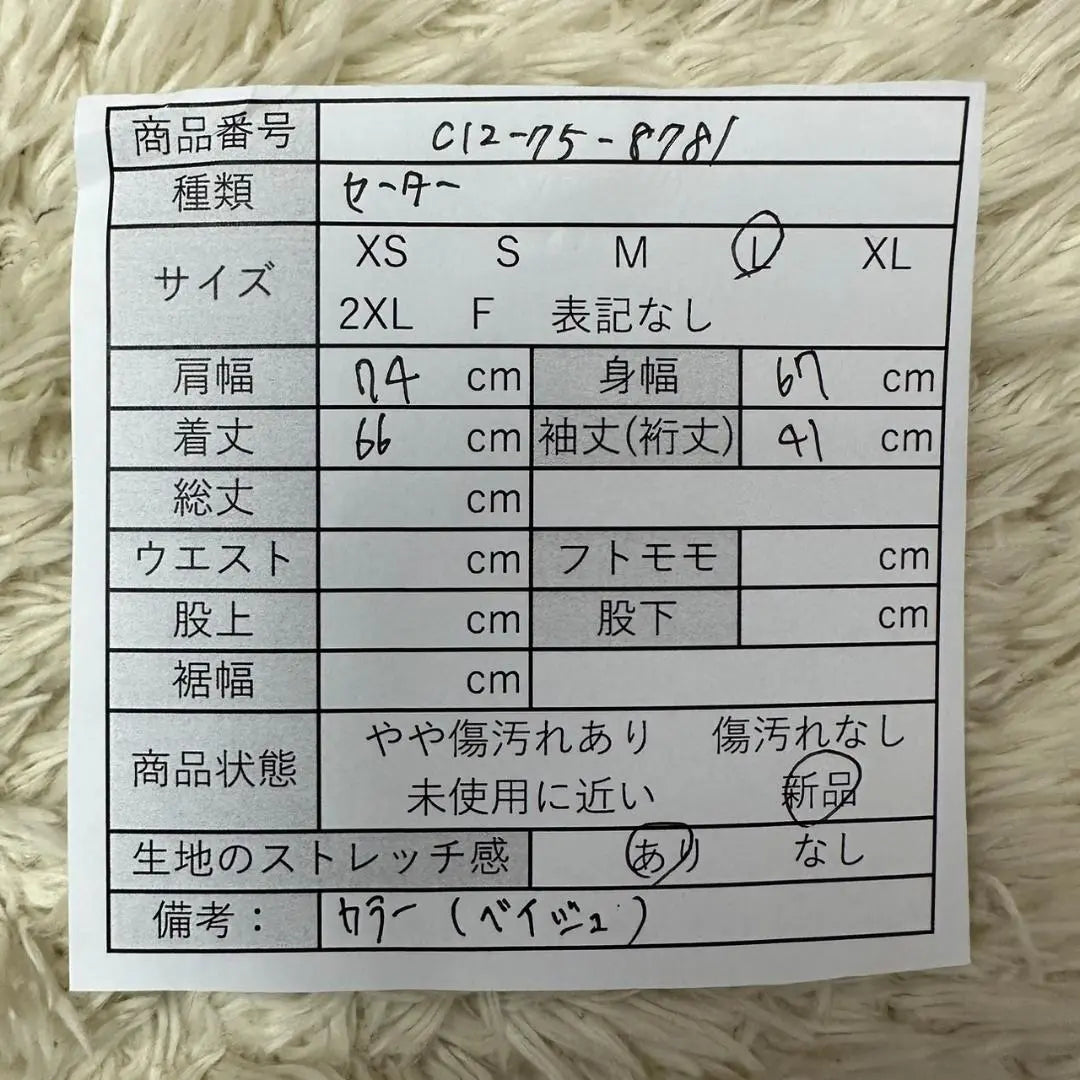 商品番号 C12-75-8781
種類 セーター
サイズ XS S M L XL
2XL F 表記なし
肩幅 74 cm 身幅 67 cm
着丈 66 cm 袖丈(裄丈) 41 cm
総丈 cm
ウエスト cm フトモモ cm
股上 cm 股下 cm
裾幅 cm
商品状態 やや傷汚れあり 傷汚れなし
未使用に近い 新品
生地のストレッチ感 あり なし
備考： カラー (ベイジュ)